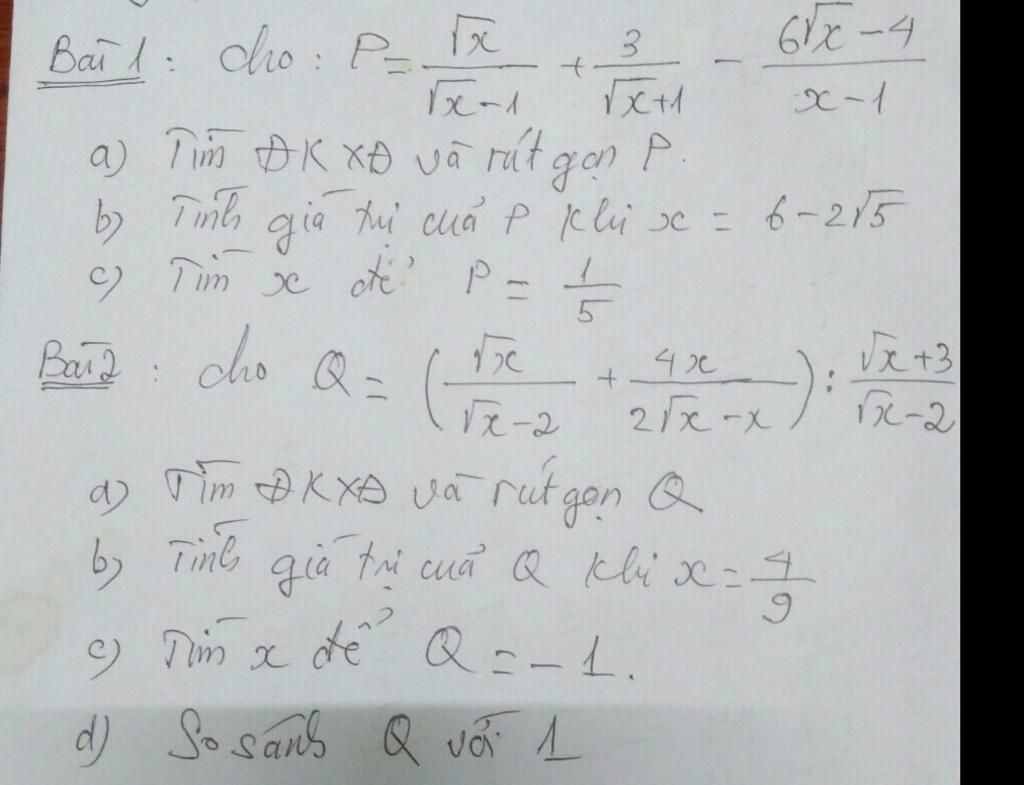 Bài 1 : cho : P = √x/(√x-1) + 3/(√x+1) - (6√x-4)/(x-1)
a) Tìm ĐKXĐ và rút gọn P.
b) Tính giá trị của P khi x = 6-2√5
c) Tìm x để P = 1/5
Bài 2 : cho Q = (√x/(√x-2) + 4x/(2√x-x)) : (√x+3)/(√x-2)
a) Tìm ĐKXĐ và rút gọn Q
b) Tính giá trị của Q khi x = 4/9
c) Tìm x để Q = -1.
d) So sánh Q với 1